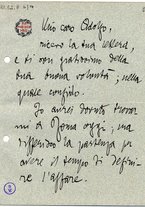 Mio caro Adolfo,
ricevo la tua lettera,
e ti son gratissimo della
tua buona volontà; nella
quale confido.
Io avrei dovuto trovar
mi a Roma oggi; ma
differendo la partenza per
avere il tempo di defini
re l'affare.